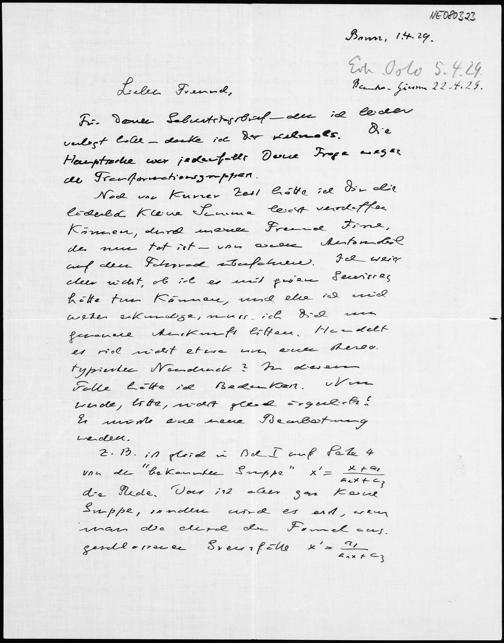 NE080323
Bonn, 1.4.29.
Erh. Oslo 5.4.29.
22.4.29.
Lieber Freund,
Für Deinen Geburtstagsbrief – den ich leider
verlegt habe – danke ich Dir vielmals. Die
Hauptsache war jedenfalls Deine Frage wegen
der Transformationsgruppen.
Noch vor kurzer Zeit hätte ich Dir die
kleine Summe leicht verschaffen
können, durch meinen Freund
der nun tot ist – von einem Automobil
auf dem Fahrrad überfahren. Ich weiss
aber nicht, ob ich es mit gutem Gewissen
hätte tun können, und ehe ich mich
weiter erkundige, muss ich Dich um
genauere Auskunft bitten. Handelt
es sich nicht etwa um einen stereo-
typischen Neudruck? In diesem
Falle hätte ich Bedenken. Nun
werde, bitte, nicht gleich ärgerlich!
Es müsste eine neue Bearbeitung
werden.
Z. B. ist gleich in Bd I auf Seite 4
von der "bekannten Gruppe" x' = x+a₁ / a₂x+a₃
die Rede. Das ist aber gar keine
Gruppe, sondern wird es erst, wenn
man die durch die Formel aus-
geschlossenen Grenzfälle x' = a₁ / a₂x+a₃